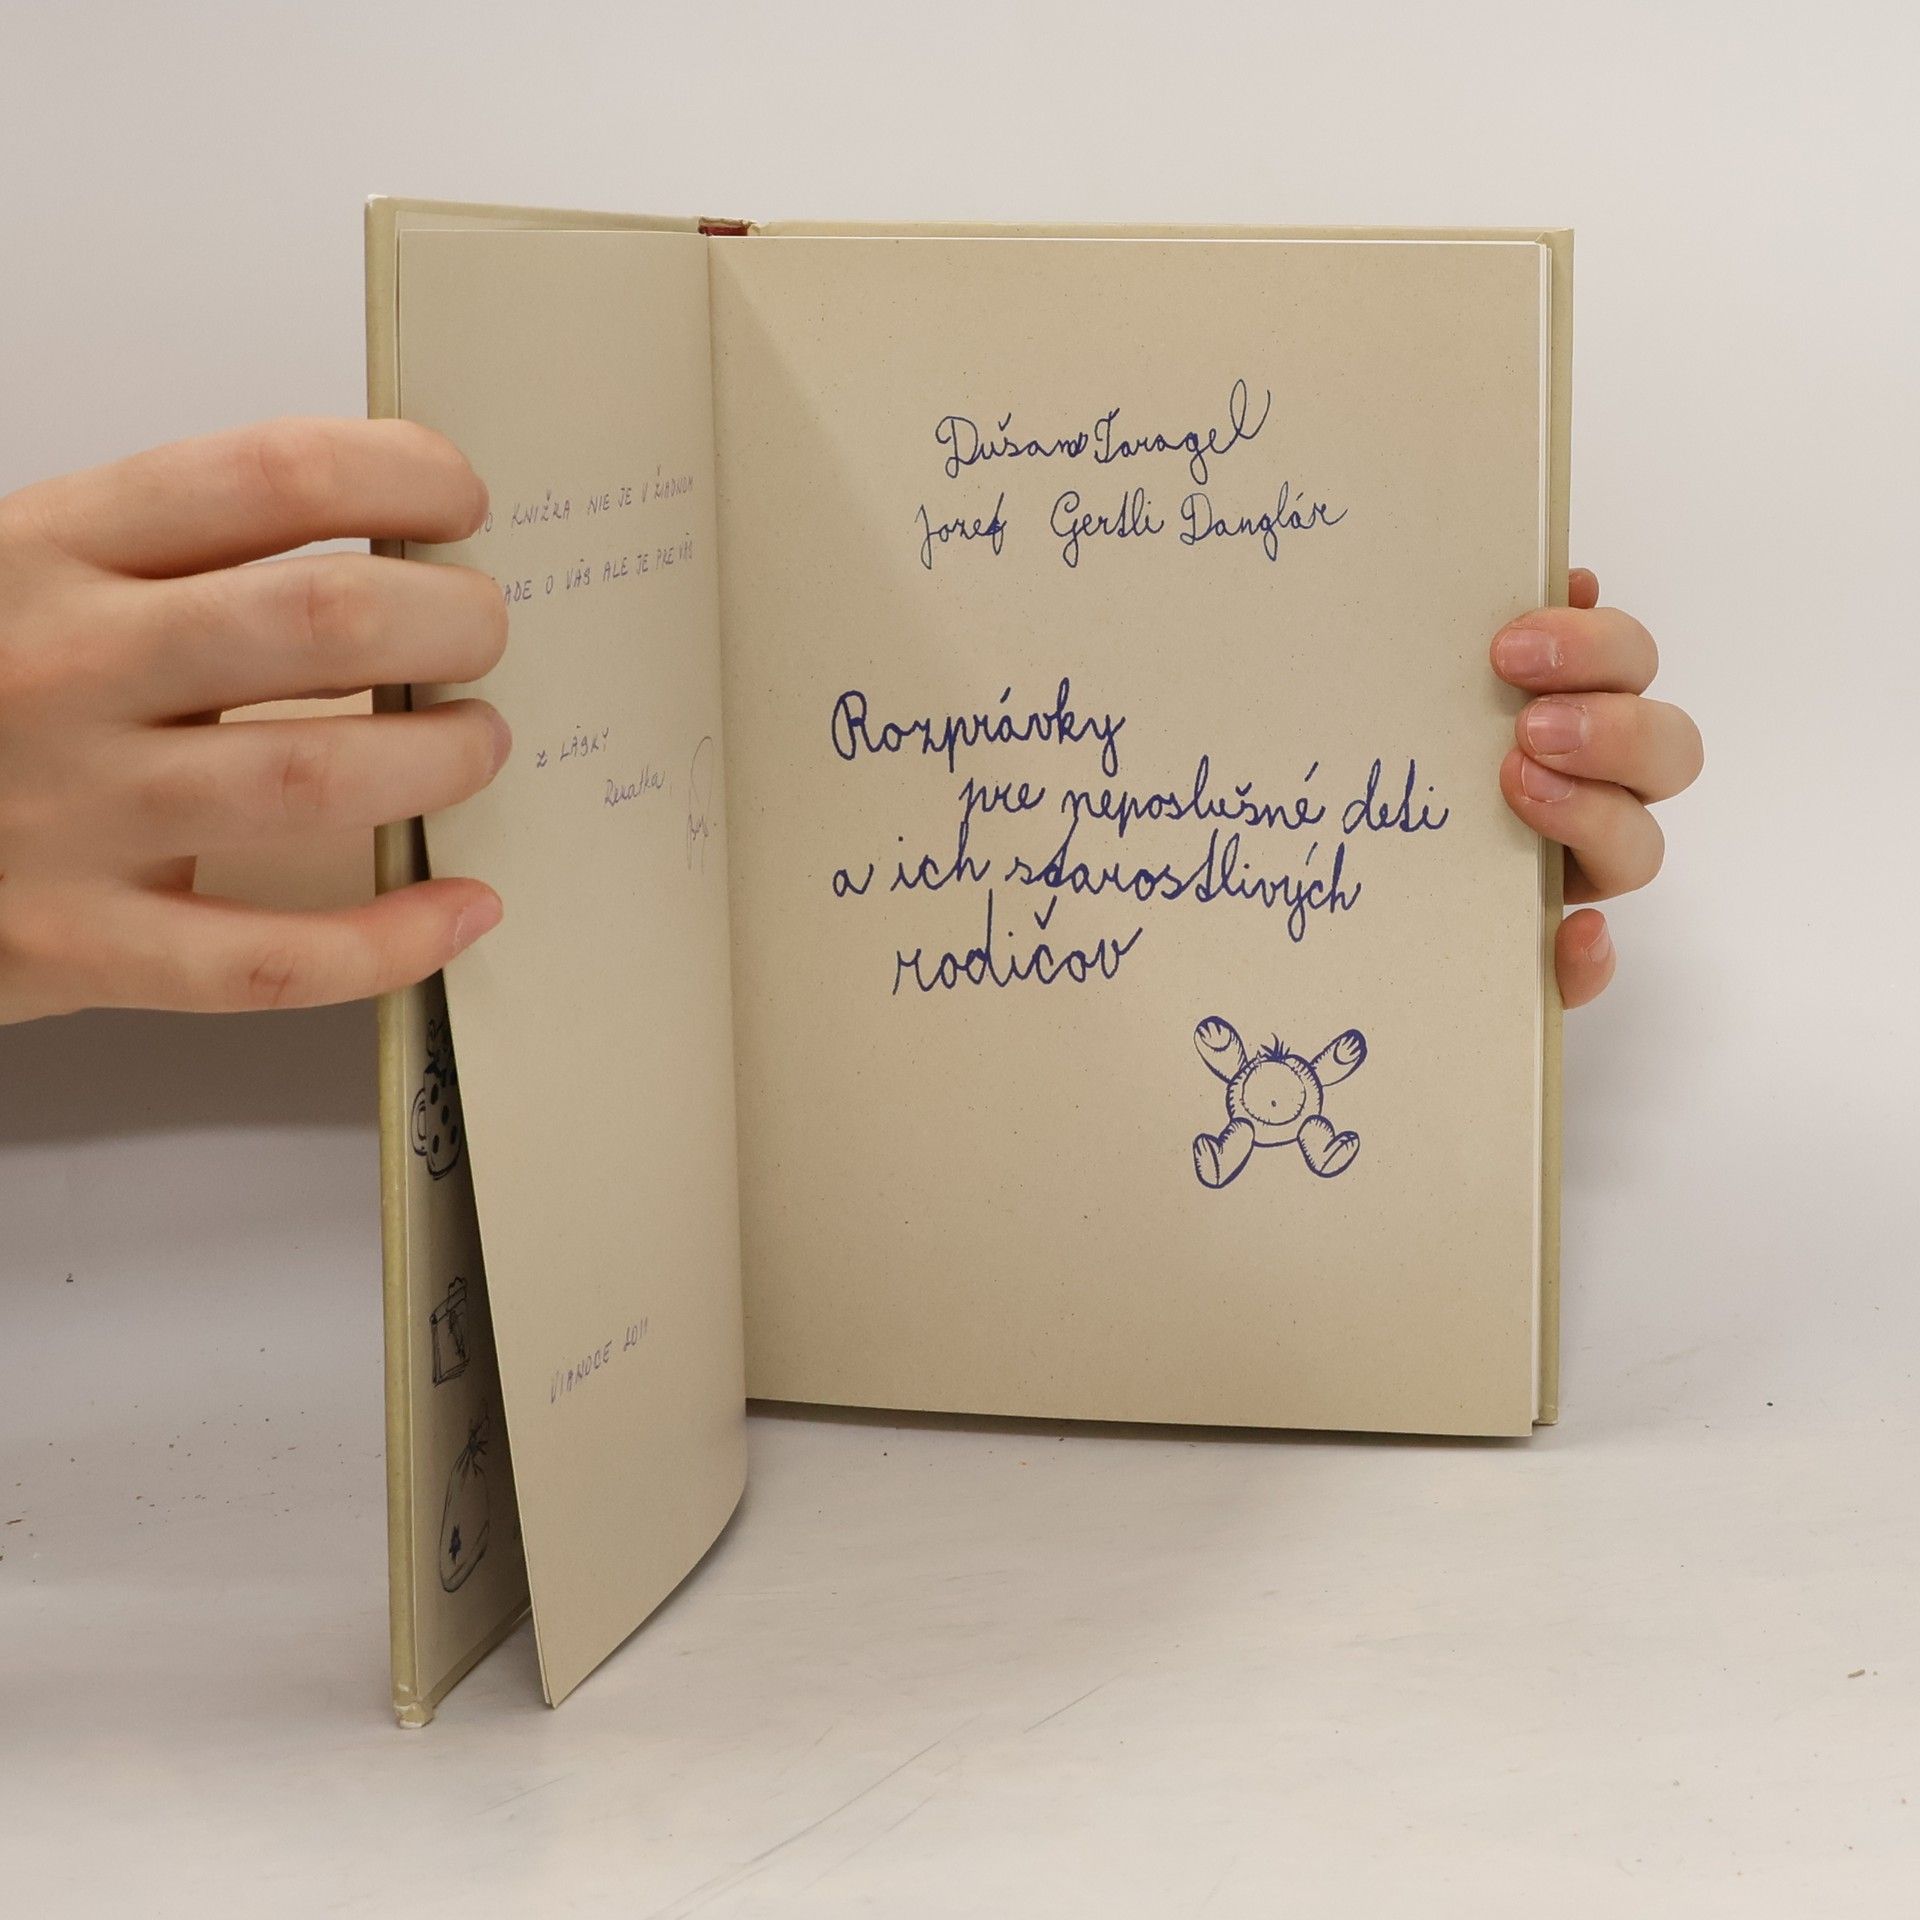 KNIŽKA NIE JE V ŽIADNOM
O VÁS ALE JE PRE VÁS
Z LÁSKY
Renatka,
VIANOCE 2011
Dušan Taragel
Jozef Gertli Danglár
Rozprávky
pre neposlušné deti
a ich starostlivých
rodičov